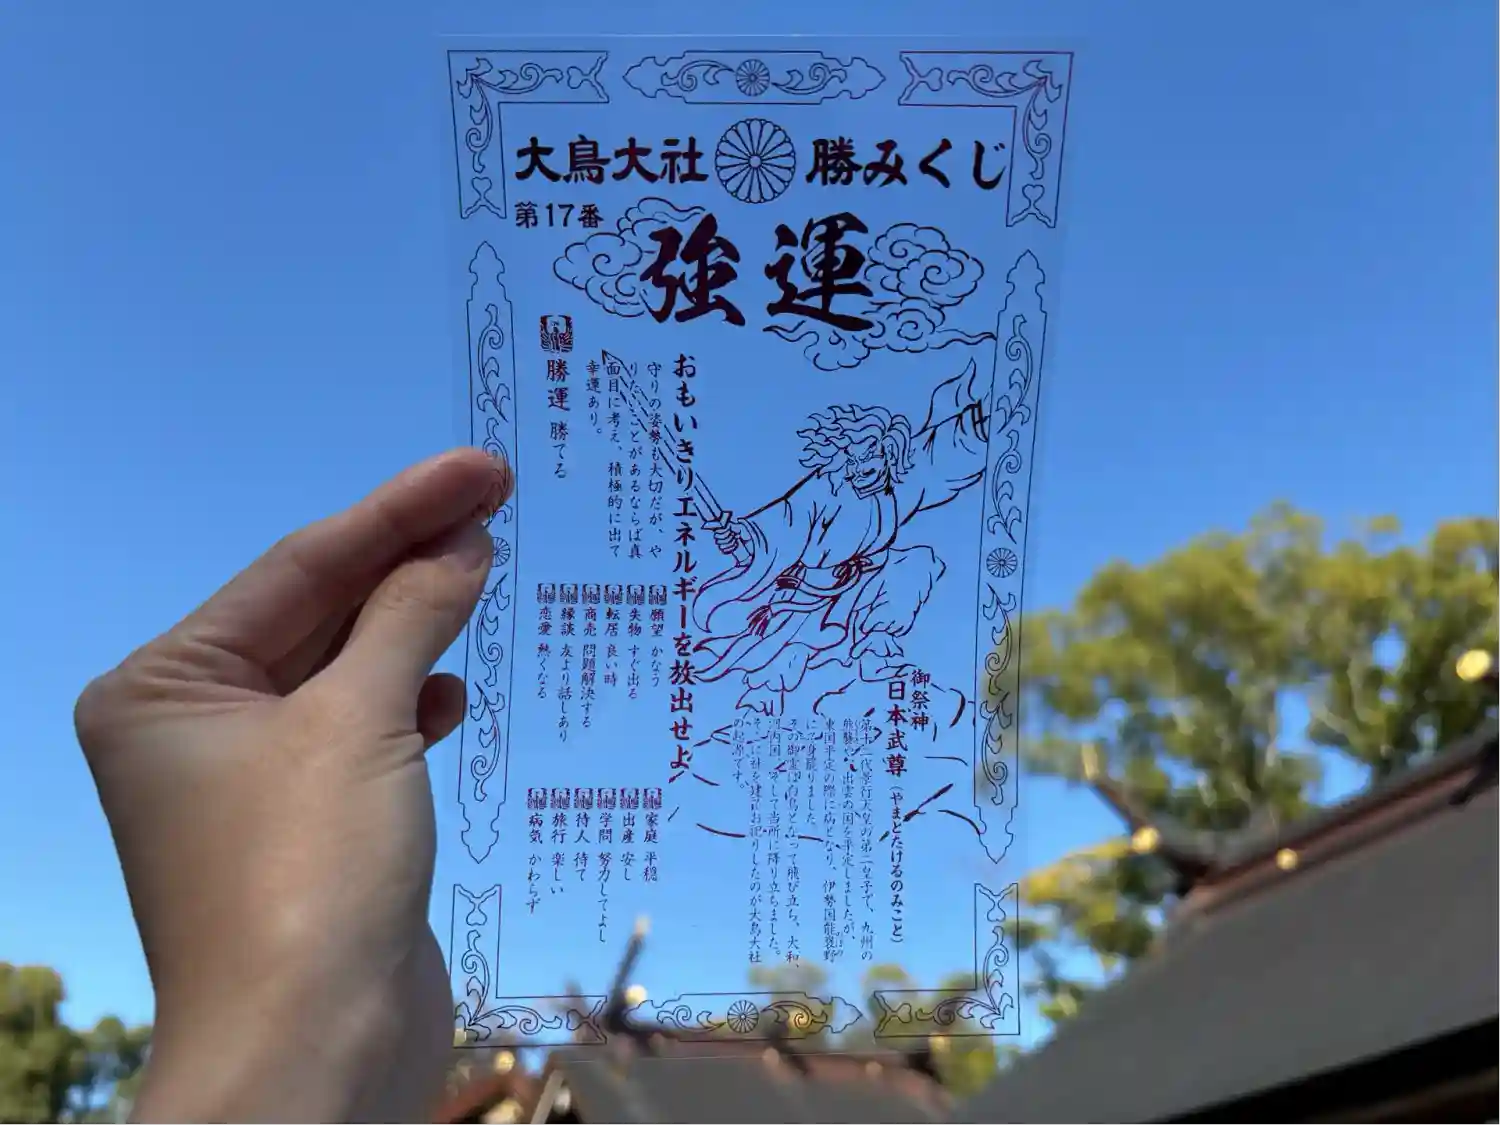 大鳥大社 勝みくじ
第17番
強運
おもいきりエネルギーを放出せよ
守りの姿勢も大切だが、や
りたいことがあるならば真
面目に考え、積極的に出て
幸運あり。
勝運 勝てる
願望 かなう
失物 すぐ出る
転居 良い時
商売 問題解決する
縁談 友より話しあり
恋愛 熱くなる
家庭 平穏
出産 安し
学問 努力してよし
待人 待て
旅行 楽しい
病気 かわらず
御祭神
日本武尊(やまとたけるのみこと)
第十二代景行天皇の第二皇子で、九州の
熊襲や、出雲の国を平定しましたが、
東国平定の際に病となり、伊勢国能褒野
にて身罷りました。
その御霊は白鳥となって飛び立ち、大和、
河内国、そして当所に降り立ちました。
そこに社を建てお祀りしたのが大鳥大社
の起源です。